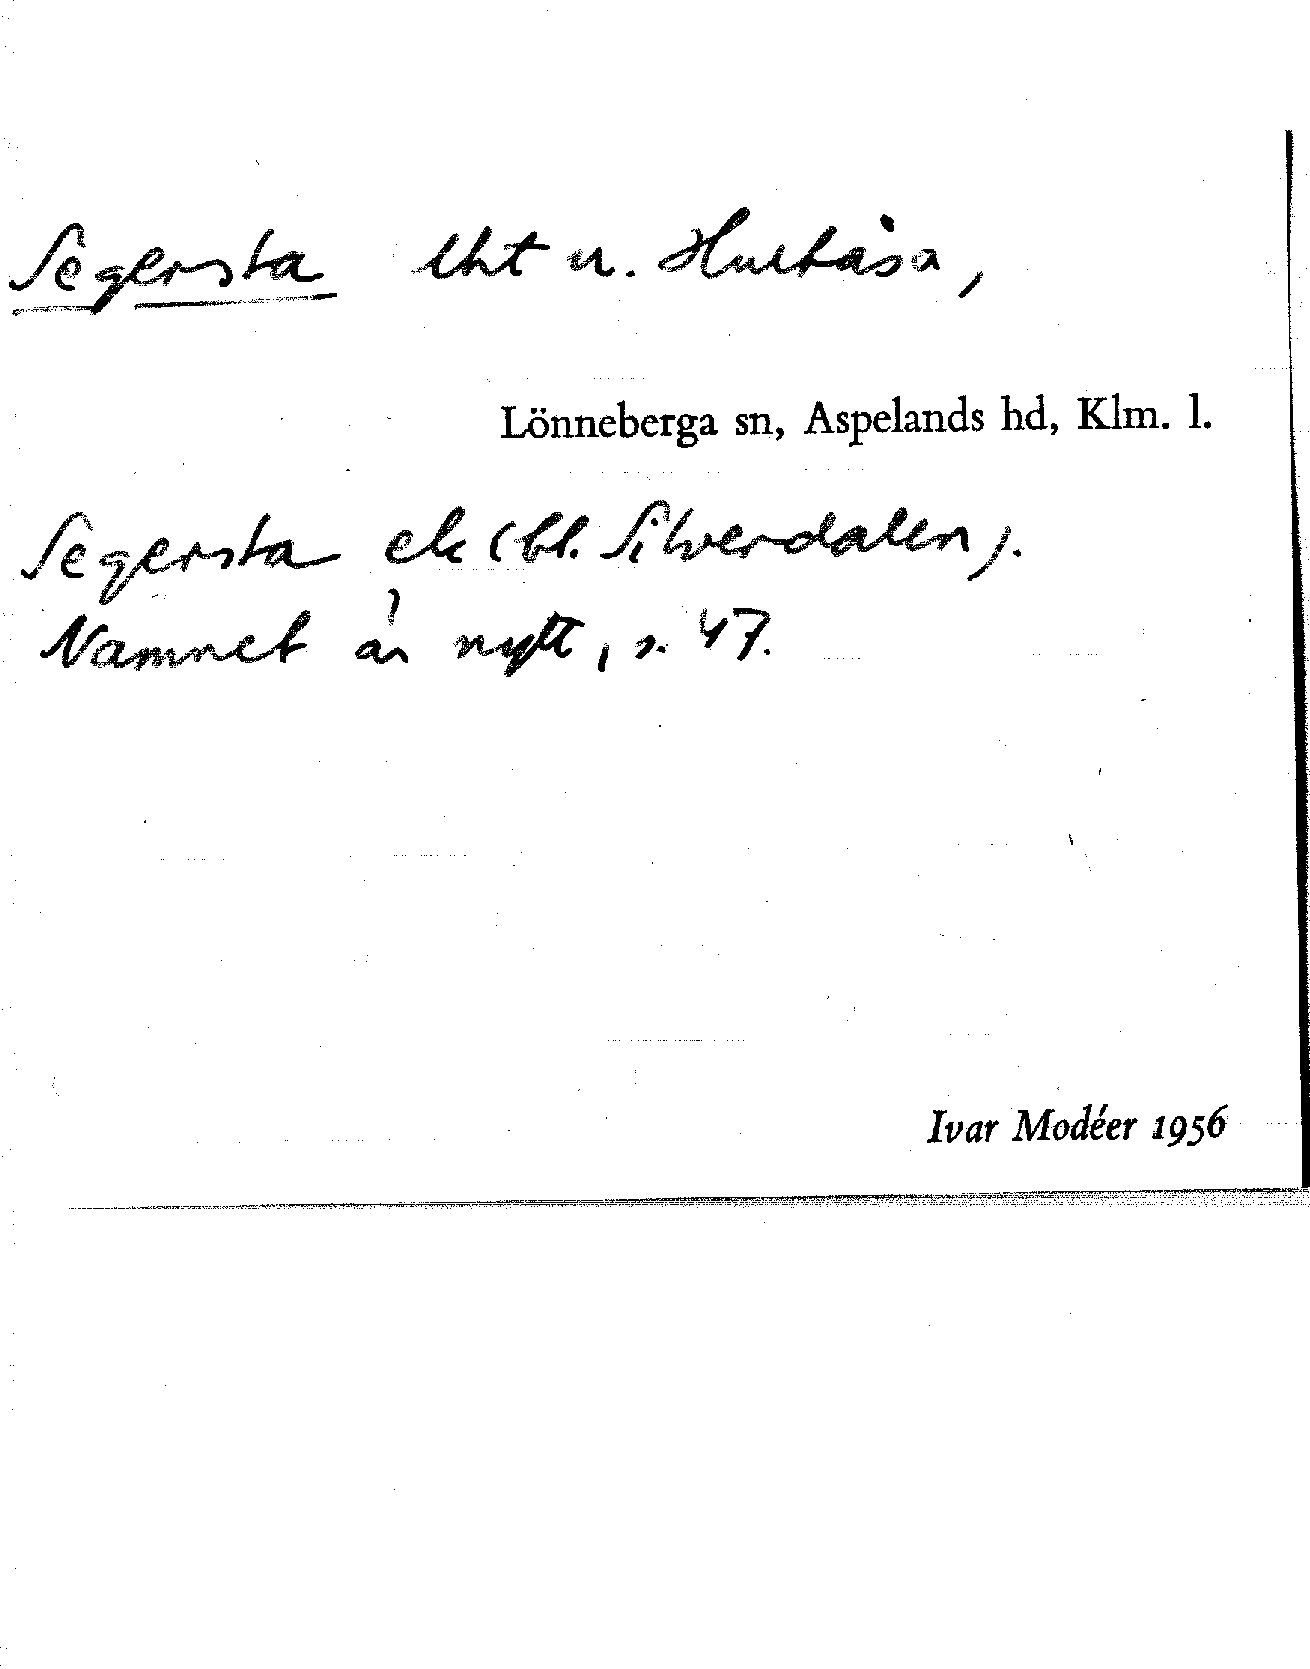 Segersta lht u. Hultåsa,
Lönneberga sn, Aspelands hd, Klm. l.
Segersta ek (bl. Silverdalen).
Namnet är nytt, s. 47.
Ivar Modéer 1956